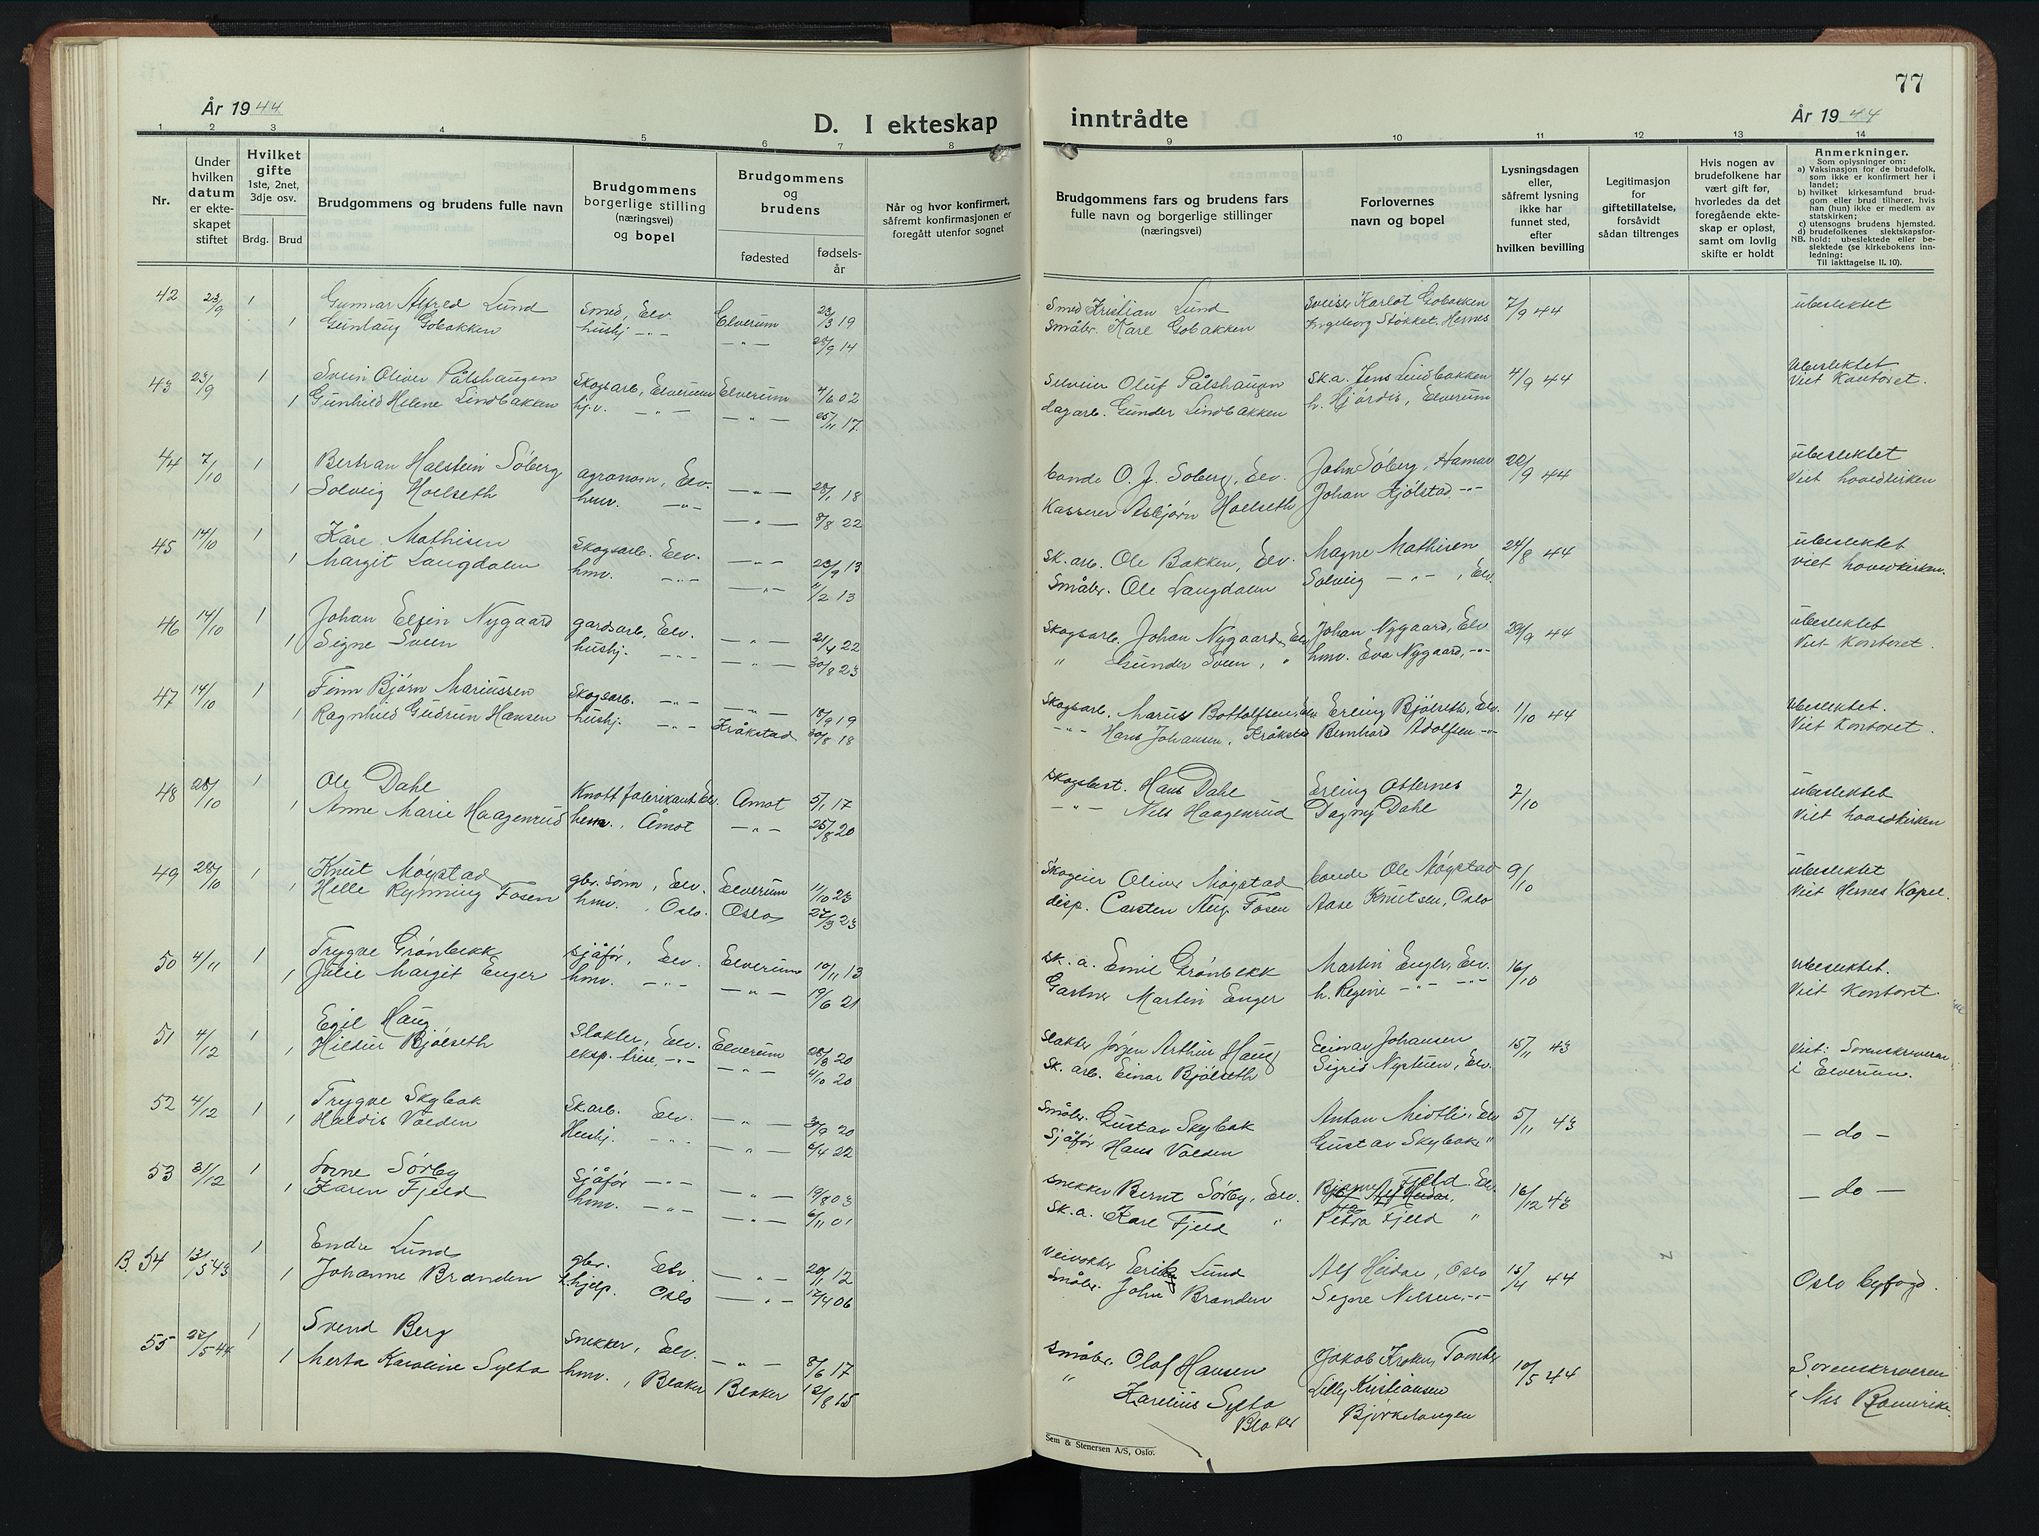 77
År 1944
D. I ekteskap inntrådte
År 1944
1 2 3 4 5 6 7 8 9 10 11 12 13 14
Nr.
Under hvilken datum er ekteskapet stiftet
Hvilket gifte 1ste, 2net, 3dje osv.
Brdg. Brud
Brudgommens og brudens fulle navn
Brudgommens borgerlige stilling (næringsvei) og bopel
Brudgommens og brudens
fødested
fødselsår
Når og hvor konfirmert, såfremt konfirmasjonen er foregått utenfor sognet
Brudgommens fars og brudens fars fulle navn og borgerlige stillinger (næringsvei)
Forlovernes navn og bopel
Lysningsdagen eller, såfremt lysning ikke har funnet sted, efter hvilken bevilling
Legitimasjon for giftetillatelse, forsåvidt sådan tiltrenges
Hvis nogen av brudefolkene har vært gift før, hvorledes da det foregående ekteskap er opløst, samt om lovlig skifte er holdt
Anmerkninger.
Som oplysninger om:
a) Vaksinasjon for de brudefolk, som ikke er konfirmert her i landet;
b) hvilket kirkesamfund brudgom eller brud tilhører, hvis han (hun) ikke er medlem av statskirken;
c) utensogns brudens hjemsted.
d) brudefolkenes slektskapsforhold: ubeslektede eller beslektede (se kirkebokens innledning:
NB.
Til iakttagelse II. 10).
42 23/9 1 Gunnar Alfred Lund Smed, Elv. Elverum 23/3 19 Smed Kristian Lund Sveiser Karlot Gobakken 7/9 44 ubeslektet
1 Gunlaug Gobakken hushj. -"- -"- 25/9 14 Småbr. Karl Gobakken Ingeborg Støkket, Hernes
43 23/9 1 Svein Oliver Pålshaugen Skogsarb, Elverum Elverum 4/6 02 Selveier Oluf Pålshaugn Sk.a. Jens Lindbakken 4/9 44 Ubeslektet
1 Gunhild Helene Lindbakken hj.v. -"- -"- 25/11 17. dagarb. Gunder Lindbakken h. Hjørdis, Elverum Viet Kontoret.
44 7/10 1 Bertran Halstein Søberg agronom, Elv. -"- 28/1 18 bonde O. J. Søberg, Elv. John Søberg, Hamar 20/9 44 ubeslektet
1 Solveig Hoelseth hmv. -"- -"- 8/8 22 Kasserer Asbjørn Hoelseth Johan Kjølstad -"- Viet hovedkirken
45 14/10 1 Kåre Mathisen Skogsarb. Elv. -"- 23/9 13 Sk. arb. Ole Bakken, Elv. Magne Mathisen 24/8 44 ubeslektet
1 Margit Langdalen hmv. -"- -"- 11/2 13 Småbr. Ole Langdalen Solveig -"-, Elv. viet hovedkirken.
46 14/10 1 Johan Elfin Nygaard gardsarb, Elv. -"- 21/4 22 Skogsarb. Johan Nygaard, Elv Johan Nygaard, Elv 29/9 44 ubeslektet
1 Signe Sveen hushj. -"- -"- 30/8 23 " Gunder Sveen, " hmv. Eva Nygaard, -"- Viet Kontoret.
47 14/10 1 Finn Bjørn Mariussen Skogsarb. -"- -"- 18/9 19 Skogsarb. Marius Bottolfsen, Elv Erling Bjølseth, Elv. 1/10 44 Ubeslektet.
1 Ragnhild Gudrun Hansen hushj. -"- Kråkstad 30/8 18 -"- Hans Johansen, Kråkstad Bernhard Adolfsen -"- Viet Kontoret.
48 28/10 1 Ole Dahl Knottfabrikant Elv. Åmot 5/1 17 Skogbest. Hans Dahl Erling Atternes 7/10 ubeslektet
1 Anne Marie Haagenrud hmv., Åmot -"- 25/8 20 -"- Nils Haagenrud Dagny Dahl Viet hovedkirken
49 28/10 1 Knut Møystad gbr. sønn, Elv. Elverum 11/10 23 Skogeier Oliver Møystad bonde Ole Møystad 9/10 ubeslektet
1 Helle Rynning Fosen hmv., Oslo. Oslo 27/3 23 disp. Carsten Aug. Fosen Aase Knutsen, Oslo Viet Hernes Kapel.
50 4/11 1 Trygve Grønbekk sjåfør, Elv. Elverum 10/11 13 sk. a. Emil Grønbekk Martin Enger, Elv. 16/10 ubeslektet.
1 Julie Margit Enger hmv. -"- -"- 19/6 21 Gartner Martin Enger h. Regine -"- -"- Viet Kontoret.
51 4/12 1 Egil Haug Slakter, Elv. Elverum 28/8 20 Slakter Jørgen Arthur Haug Einar Johansen 15/11 43 Viet: Sorenskriveren
1 Hildur Bjølseth eksp. trise, -"- -"- 4/10 20 Sk. arb. Einar Bjølseth Sigrid Nystuen, Elv. i Elverum.
52 4/12 1 Trygve Skybak Sk.arb. Elv. -"- 30/9 20 Småbr. Gustav Skybak Anton Midtli, Elv 5/11 43 - do -
1 Haldis Volden Hushj. -"- -"- 6/4 22 Sjåfør Hans Volden Gustav Skybak "
53 31/12 1 Arne Sørby Sjåfør -"- -"- 19/8 03 snekker Bernt Sørby, Elv. Bjarne Fjeld, Elv. 16/12 43 - do -
1 Karen Fjeld hmv. -"- -"- 6/11 01 Sk. a. Karl Fjeld " Petra Fjeld "
B. 54 13/5 43 1 Endre Lund gbr. Elv. -"- 20/1 12 Veivokter Erik Lund Alf Heidal, Oslo 15/4 44 Oslo byfogd.
1 Johanne Branden k.hjelp. Oslo -"- 17/4 06 Småbr. John Branden Signe Nilsen -"-
55 27/5 44 1 Svend Berg Snekker, Elv. -"- 8/6 17 Småbr. Olof Hansen Jakob Kroken, Tomter 10/5 44 Sorenskriveren
1 Merta Karoline Sylta hmv., Blaker Blaker 12/8 15 " Karelius Sylta Lilly Kristiansen i Nes Romerike.
Blaker Bjørkelangen
Sem & Stenersen A/S, Oslo.